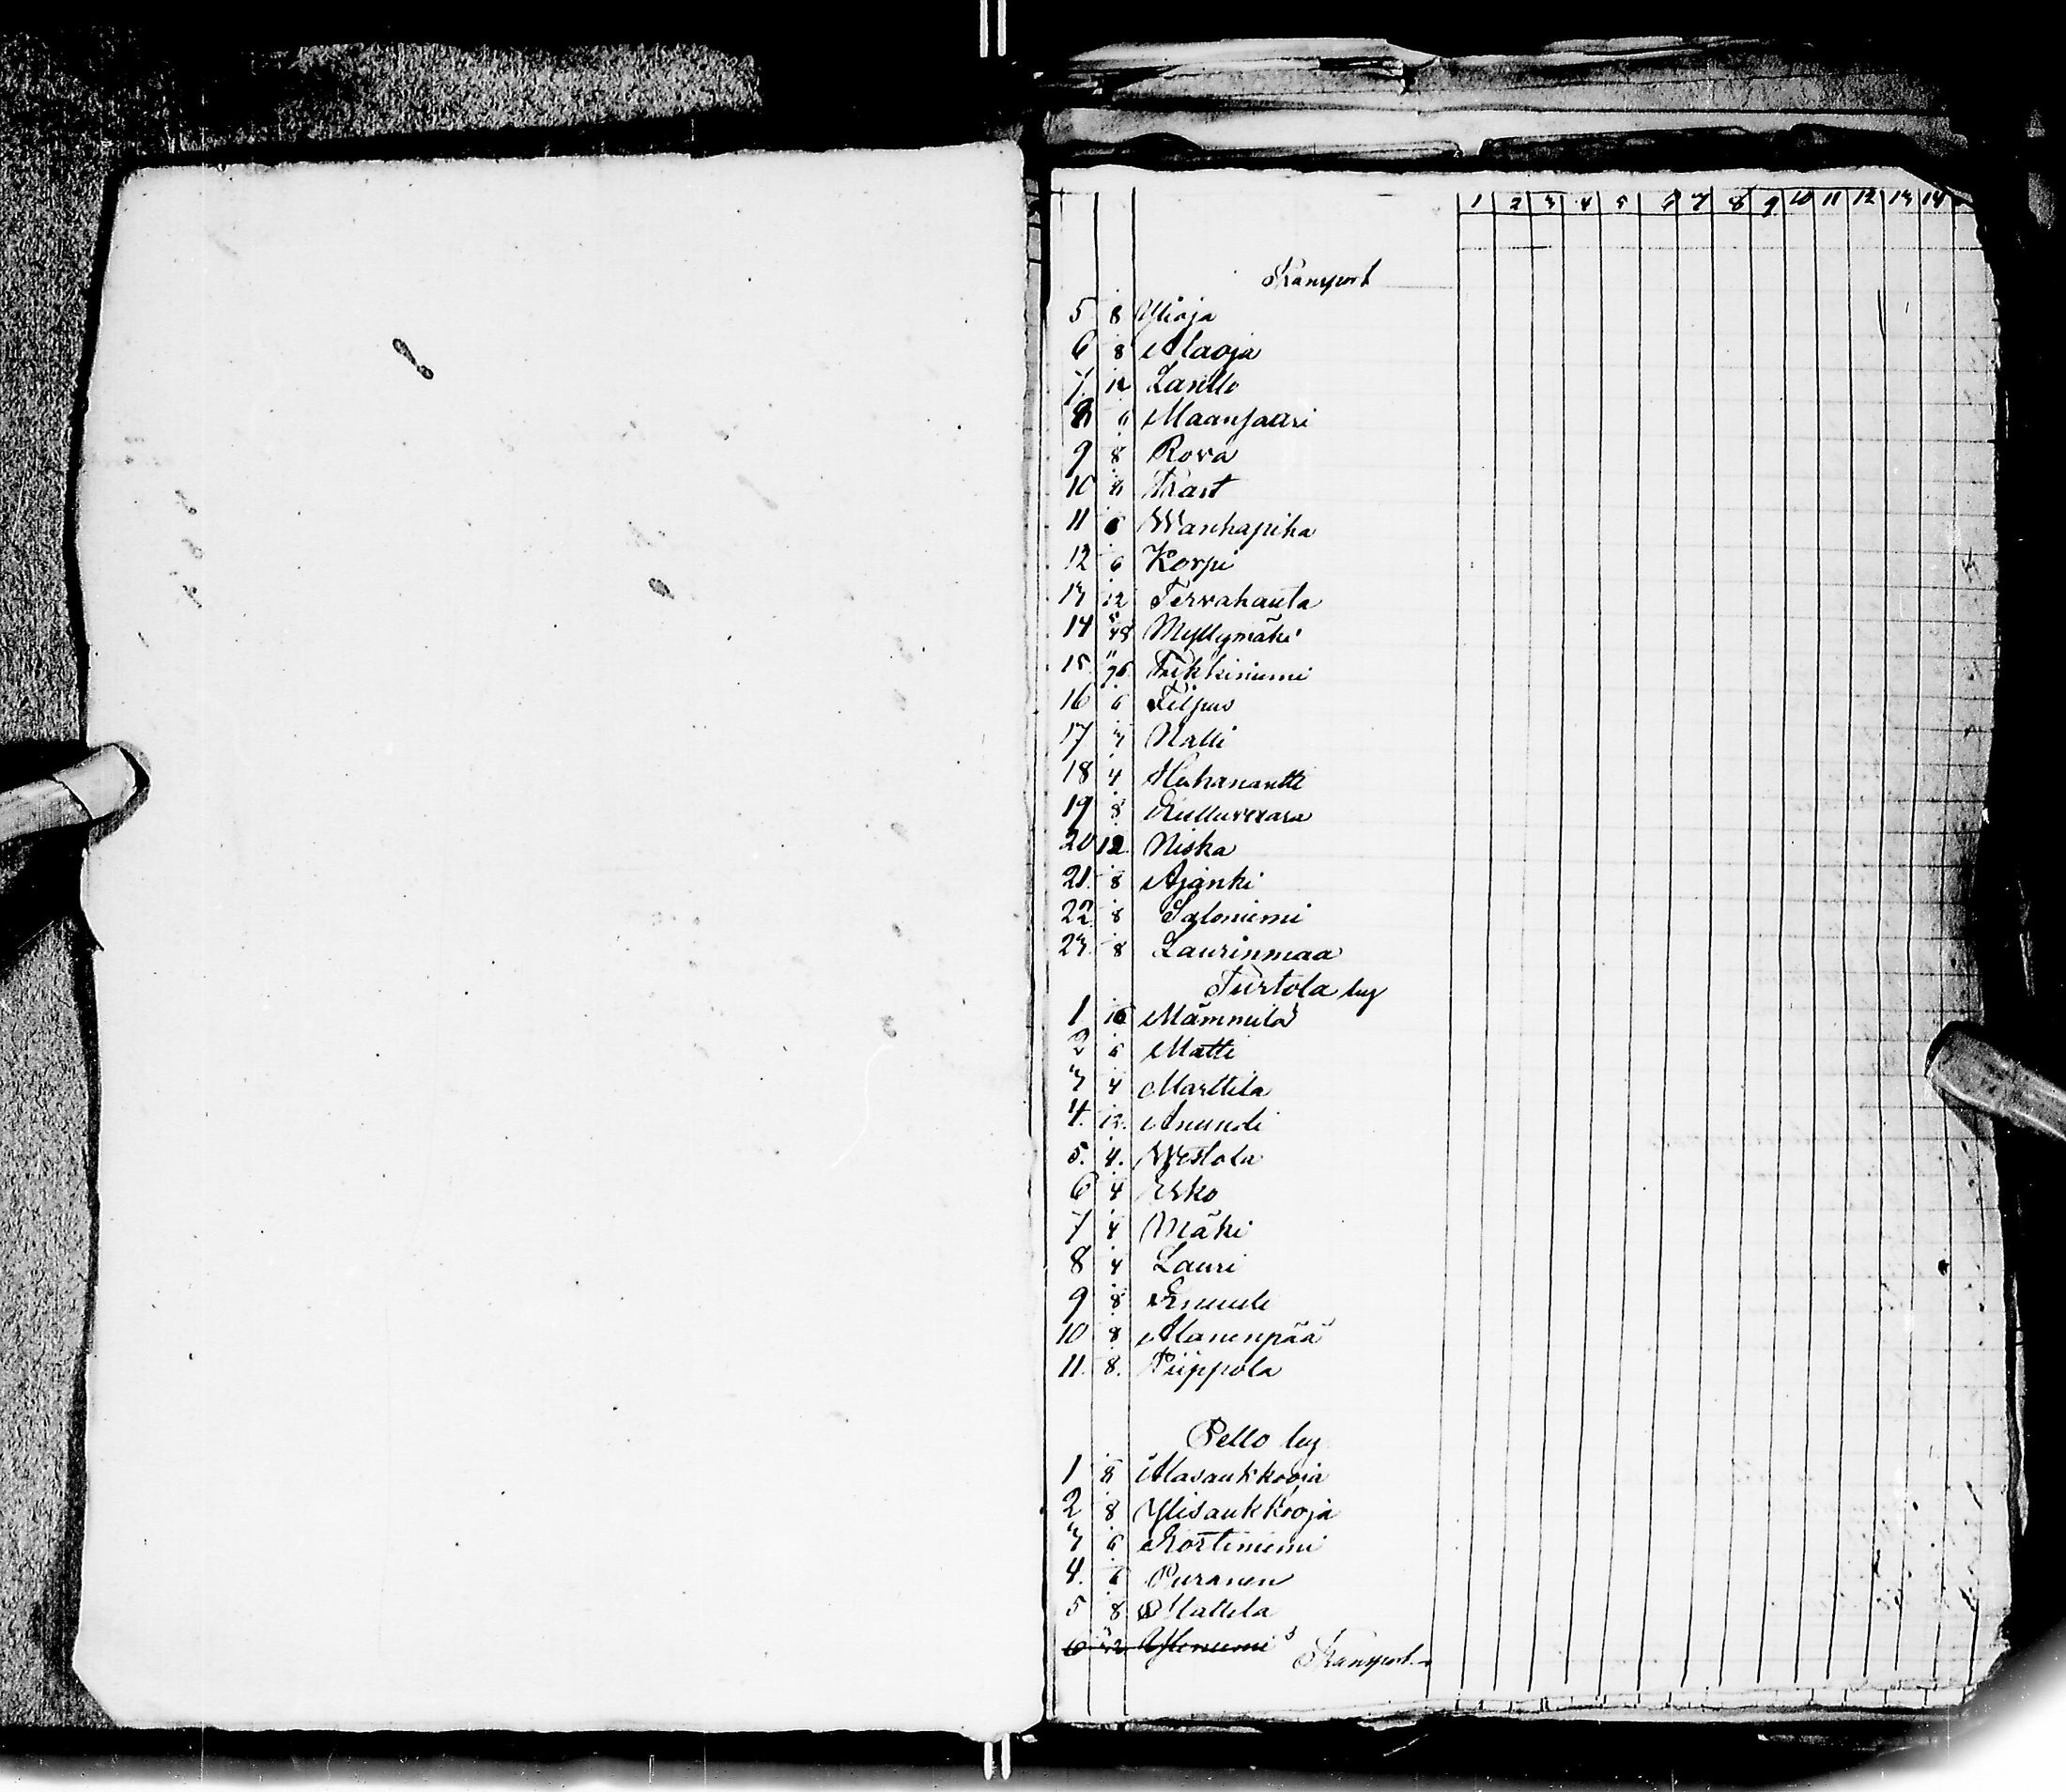 1 2 3 4 5 6 7 8 9 10 11 12 13 14
Transport
5 8 Ylioja
6 8 Alaoja
7. 12 Lantto
8 6 Maanjaari
9 8 Rova
10 8 Trast
11 6 Wanhapiha
12 6 Korpi
13 12 Tervahauta
14 5/48 Myllymäki
15 11/96 Tikkiniemi
16 6 Filpus
17 3 Nalli
18 4 Huhanantti
19 8 Kulluvaara
20 12 Niska
21. 8 Ajanki
22 8 Saloniemi
23. 8 Laurinmaa
Turtola by
1 16 Mämmilä
2 6 Matti
3 4 Marttila
4. 12. Anundi
5. 4. Westola
6 4 Erko
7 4 Mäki
8 4 Lauri
9 8 Enundi
10 8 Alanenpää
11. 8. Piippola
Pello by
1 8 Alasaukkooja
2 8 Ylisaukkooja
3 6 Kortiniemi
4. Puranen
5 8 Mattila
6 Yliniemi
Transport